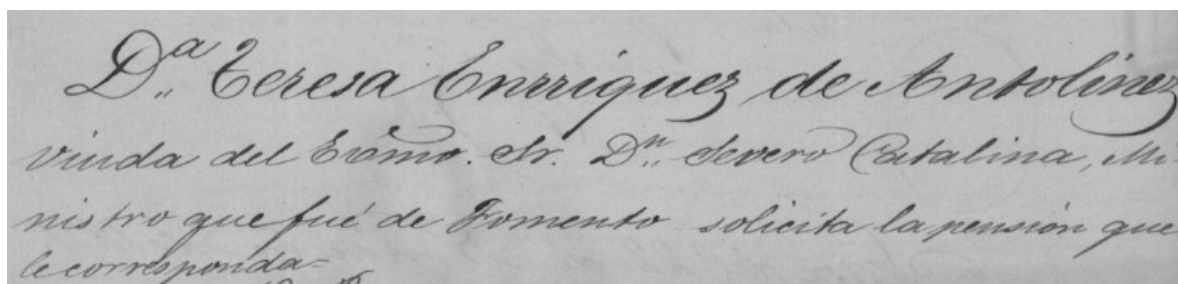 D.ª Teresa Enrriquez de Antolinez
viuda del Excmo. Sr. D.n Severo Catalina, Mi-
nistro que fué de Fomento solicita la pensión que
le corresponda=